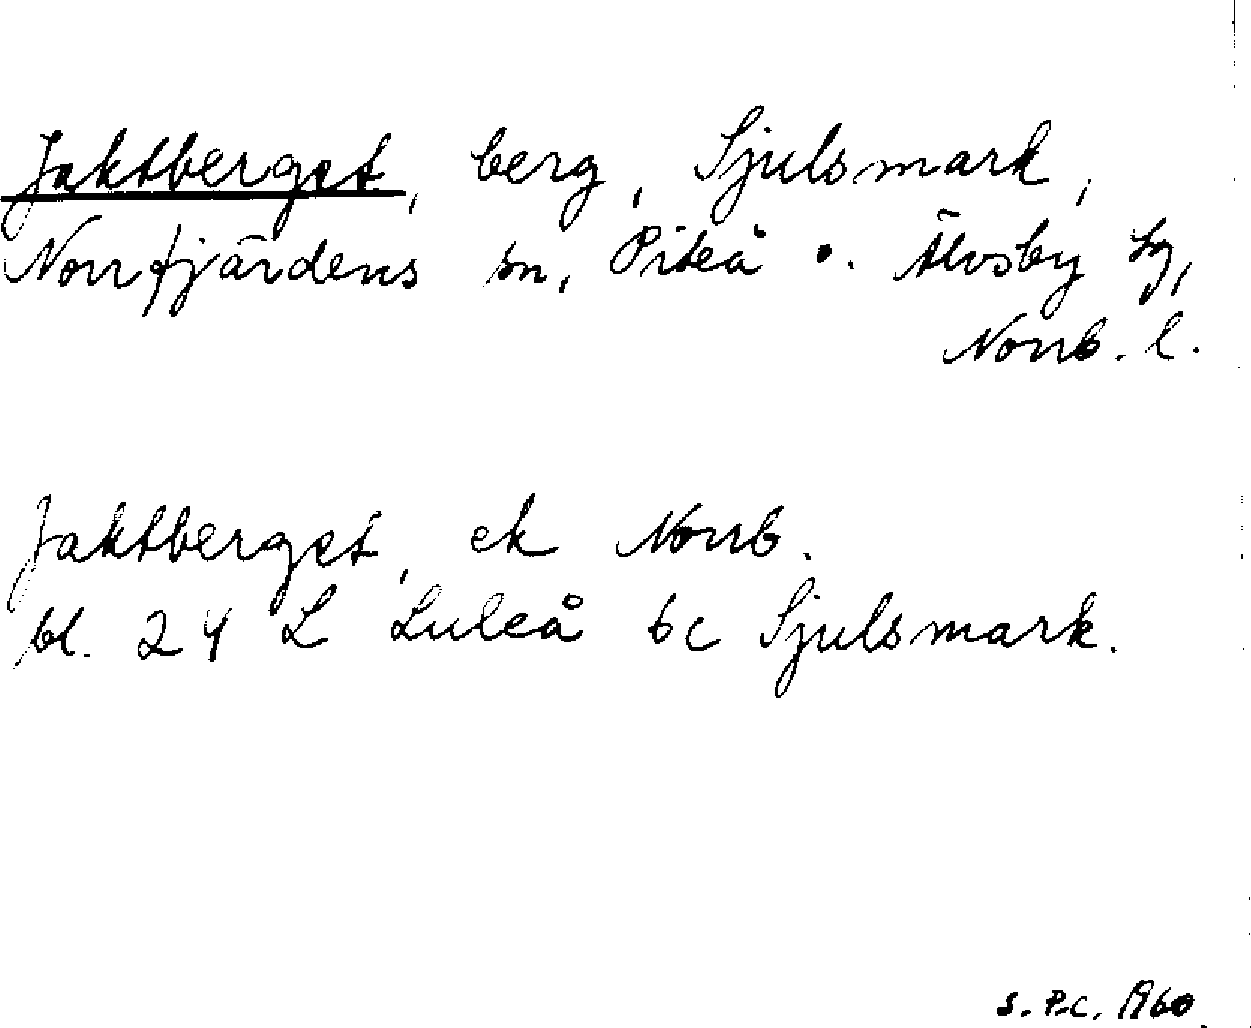 Jaktberget, berg, Sjulsmark,
Norrfjärdens sn, Piteå o. Älvsby tg,
Norrb. l.
Jaktberget, ek Norrb.
bl. 24 L Luleå 6c Sjulsmark.
S. P.C. 1960